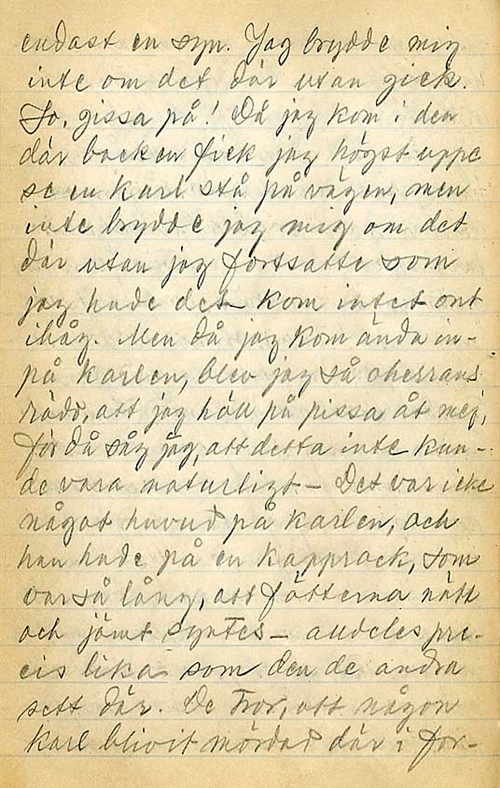 endast en syn. Jag brydde mig
inte om det där utan gick.
Jo, gissa på! Då jag kom i den
där backen fick jag högst uppe
se en karl stå på vägen, men
inte brydde jag mig om det
där utan jag fortsatte som
jag hade det - kom intet ont
ihåg. Men då jag kom ända in-
på karlen, blev jag så ohessans
rädd, att jag höll på pissa åt mej,
för då såg jag, att detta inte kun-
de vara naturligt - Det var icke
något huvud på karlen, och
han hade på en kapprock, som
var så lång, att fötterna nätt
och jämt syntes - alldeles pre-
cis lika som den de andra
sett där. De tror, att någon
karl blivit mördad där i för-